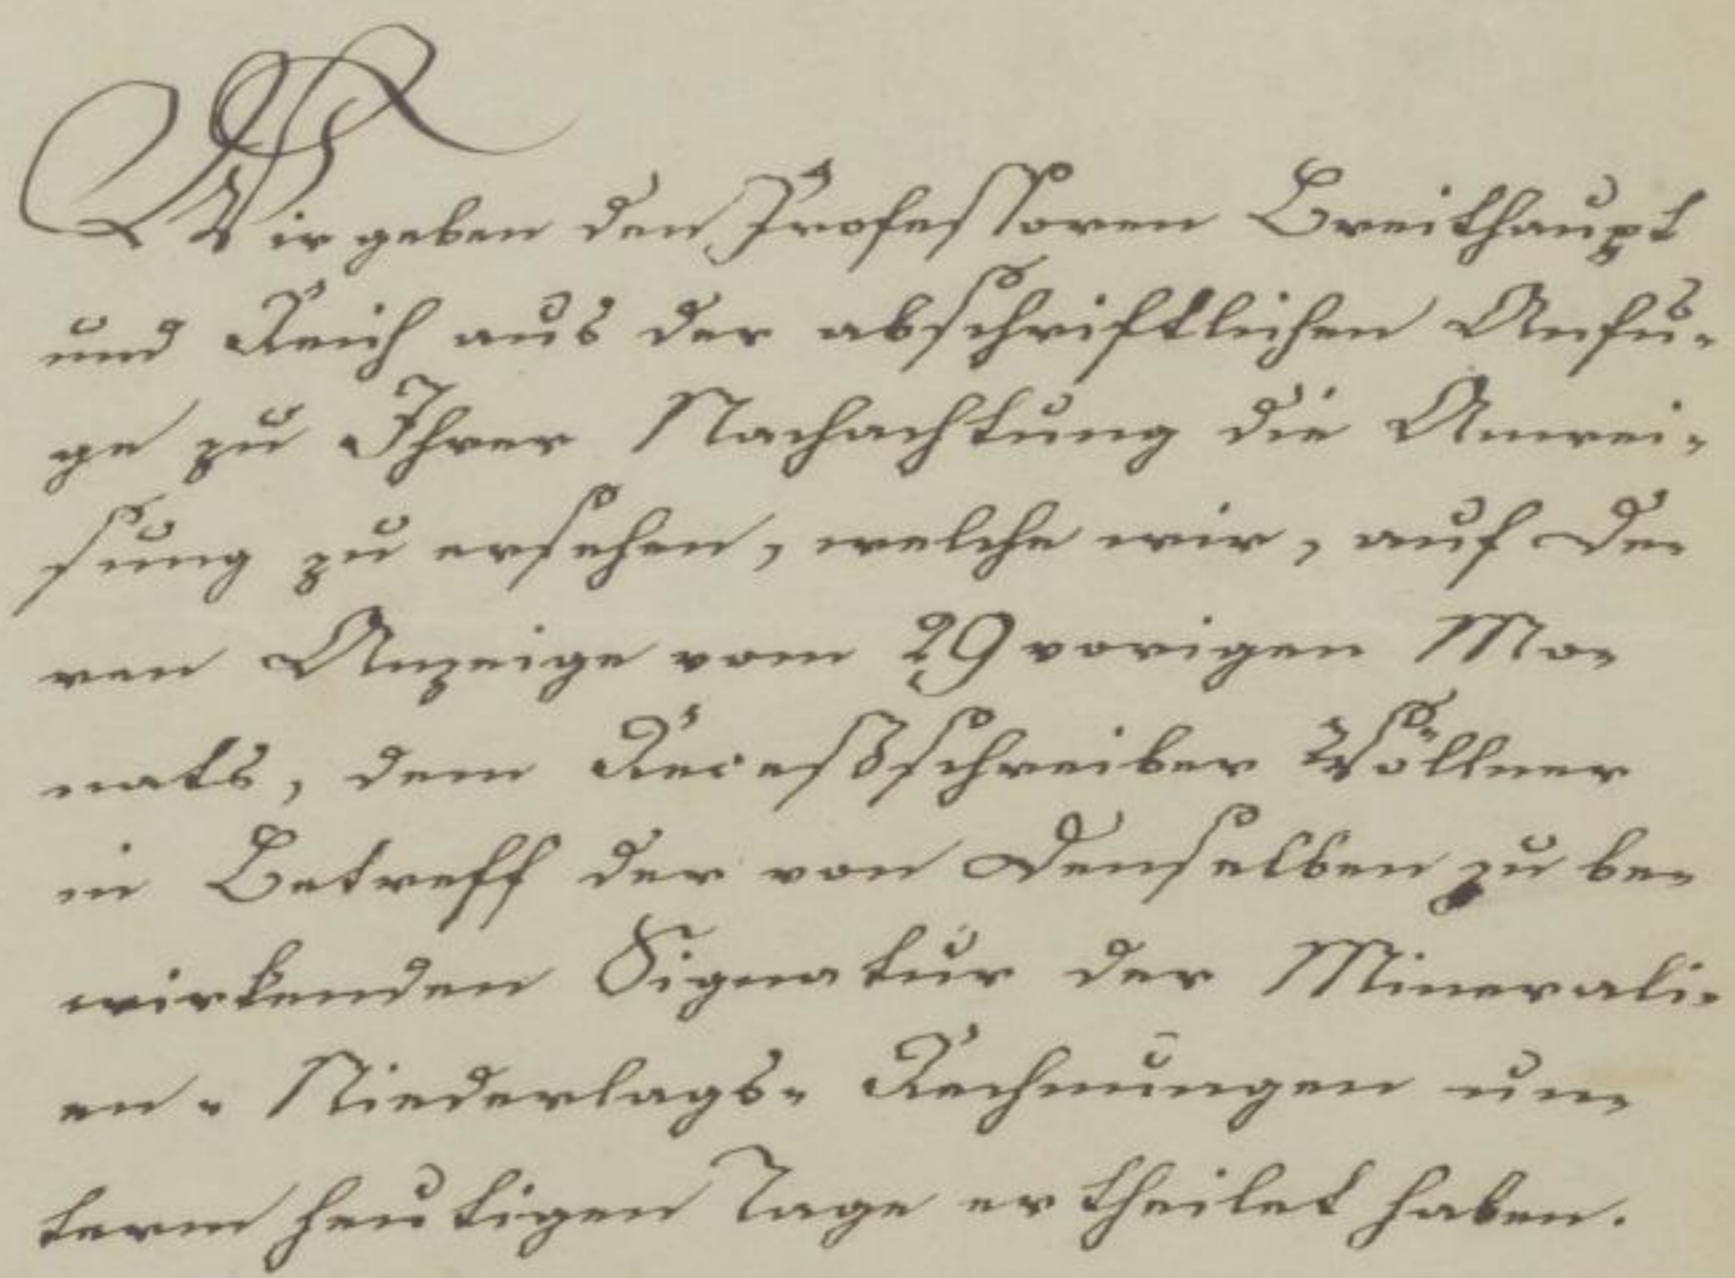 Wir geben den Professoren Breithaupt
und Reich aus der abschriftlichen Anfu-
ge zu Ihrer Nachachtung die Anwei-
sung zu ersehen, welche wir, auf De-
ren Anzeige vom 29 vorigen Mo-
nats, dem Receßschreiber Wöllner
in Betreff der von Denselben zu be-
wirkenden Signatur der Minerali-
en-Niederlags-Rechnungen un-
term heutigen Tage ertheilet haben.